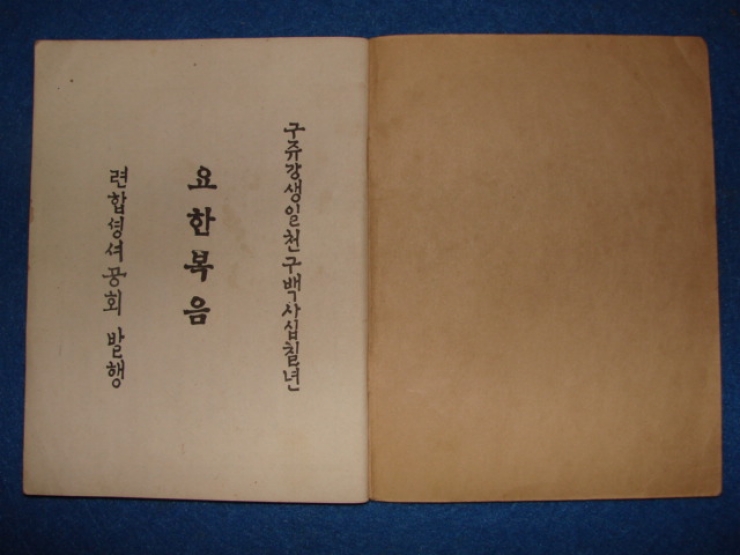 구쥬강생일천구백사십칠년
요한복음
련합셩셔공회 발행